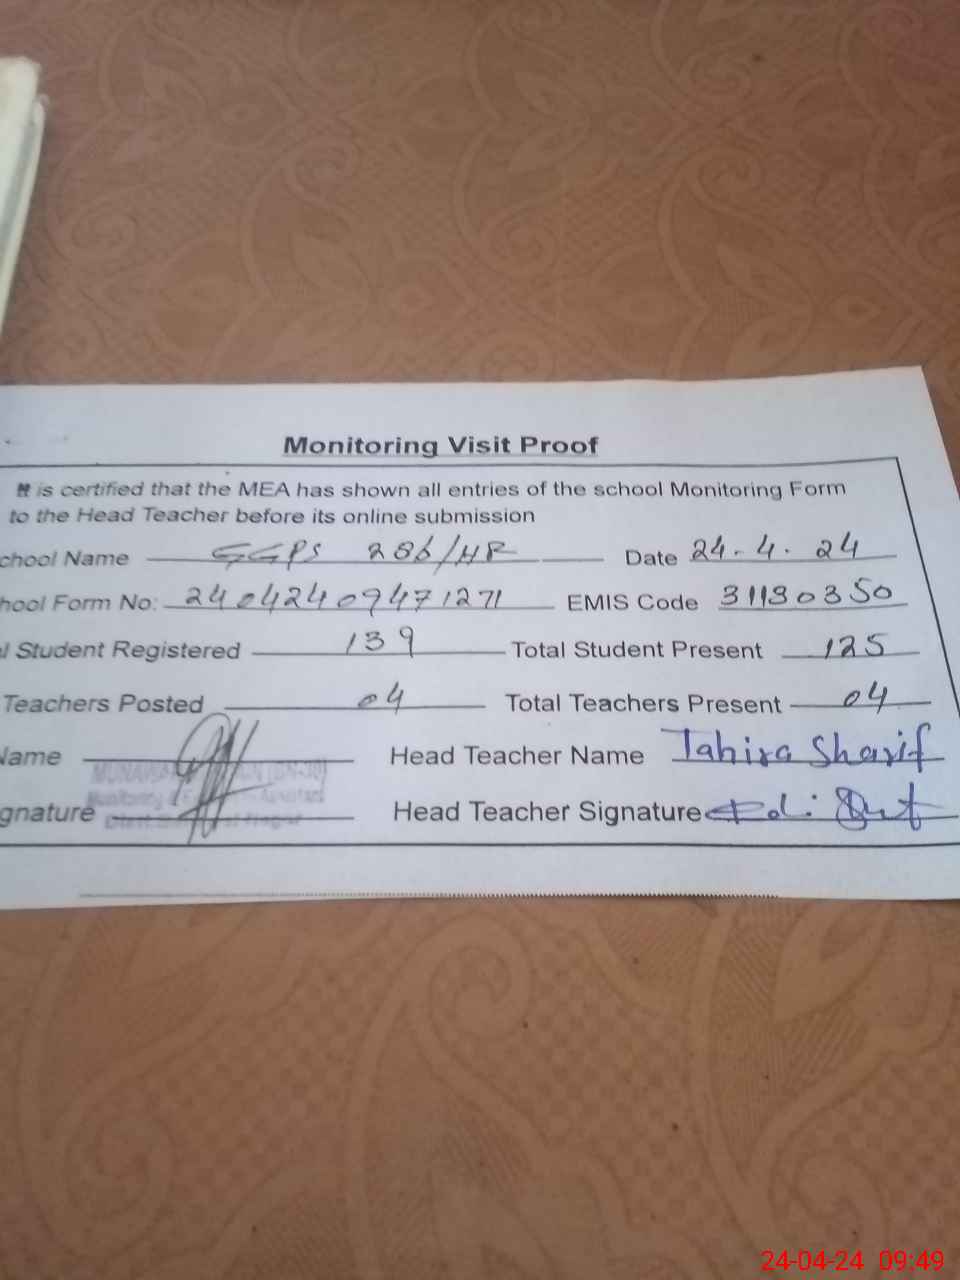 Monitoring Visit Proof
It is certified that the MEA has shown all entries of the school Monitoring Form
to the Head Teacher before its online submission
chool Name GGPS 286/HR Date 24-4-24
hool Form No: 24042409471271 EMIS Code 31130350
l Student Registered 139 Total Student Present 125
Teachers Posted 04 Total Teachers Present 04
Name Head Teacher Name Tahira Sharif
gnature Head Teacher Signature
24-04-24 09:49